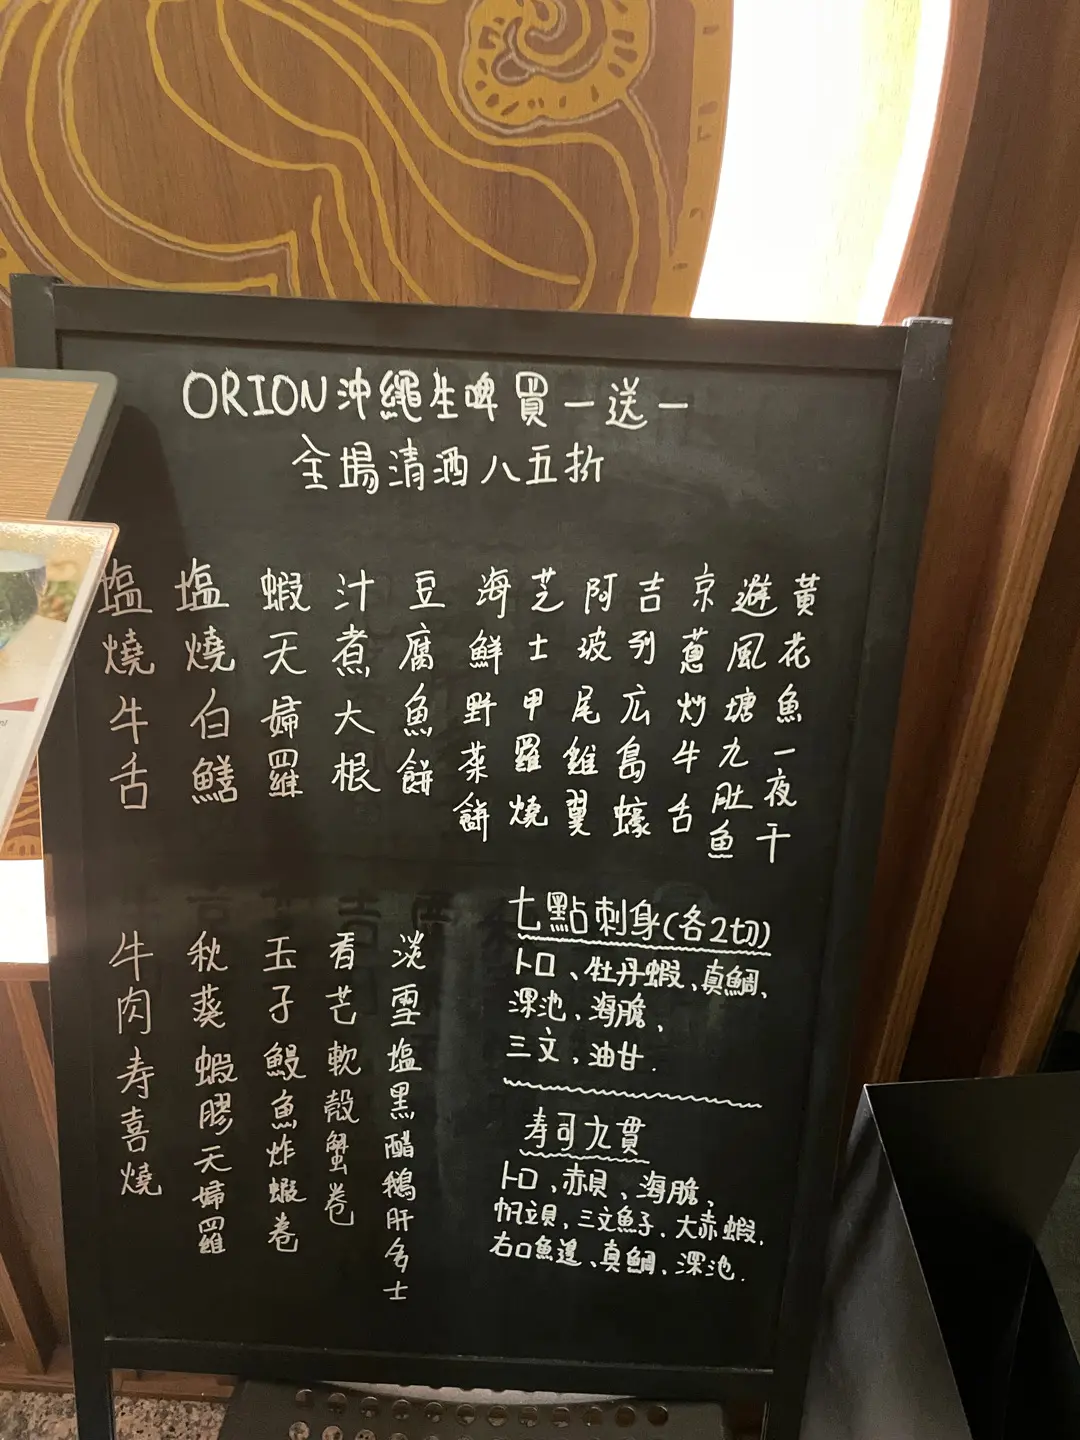 ORION沖繩生啤買一送一
全場清酒八五折
黃花魚一夜干
避風塘九肚魚
京蔥炒牛舌
吉列広島蠔
阿波尾雞翼
芝士甲羅燒
海鮮野菜餅
豆腐魚餅
汁煮大根
蝦天婦羅
塩燒白鱔
塩燒牛舌
七點刺身(各2切)
トロ、牡丹蝦、真鯛、
深池、海膽、
三文,油甘.
寿司九貫
トロ、赤貝、海膽,
帆立貝,三文魚子、大赤蝦,
右口魚邊、真鯛、深池.
淡雪塩黑醋鵝肝多士
香芒軟殼蟹卷
玉子鰻魚炸蝦卷
秋葵蝦膠天婦羅
牛肉寿喜燒